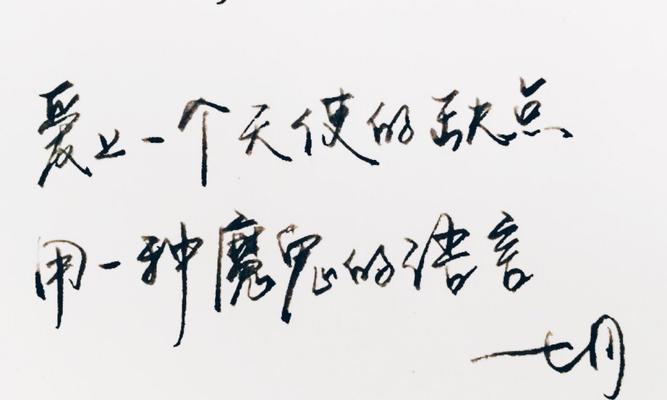 爱上一个天使的缺点
用一种魔鬼的语言
七月